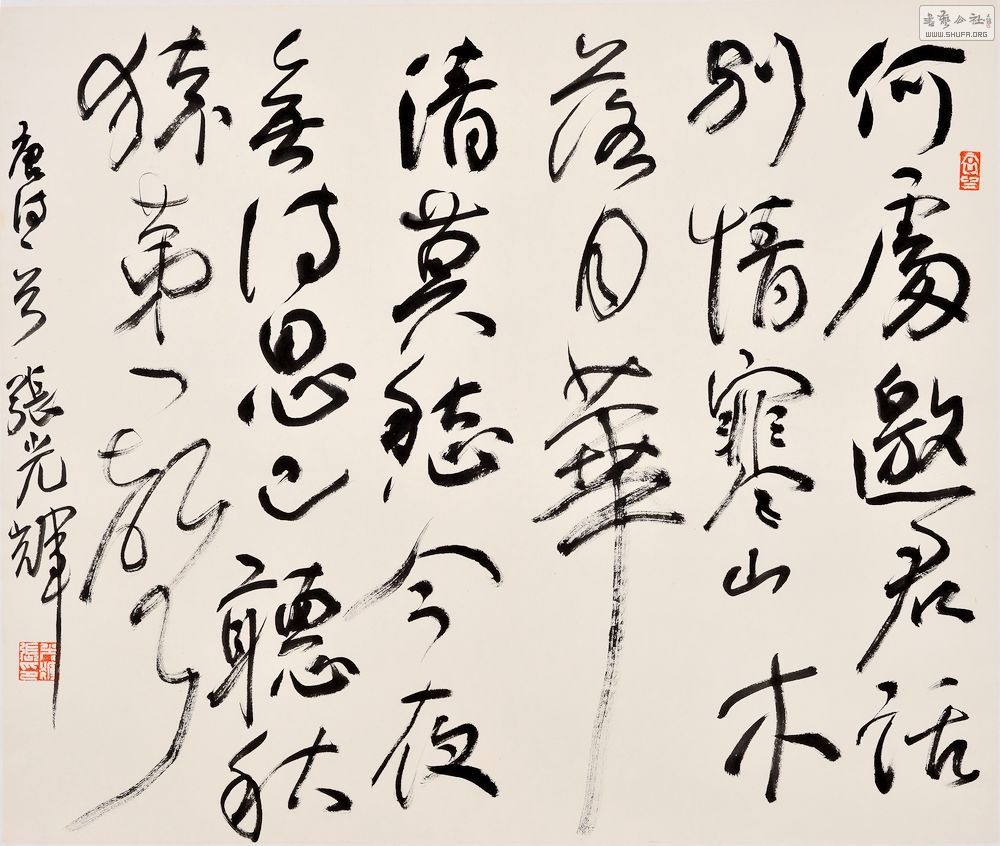 何處邀君話
別情寒山木
落月華
清莫愁今夜
無詩思已聽秋
猿第一聲
唐詩一首 張光輝
書藝公社
WWW.SHUFA.ORG